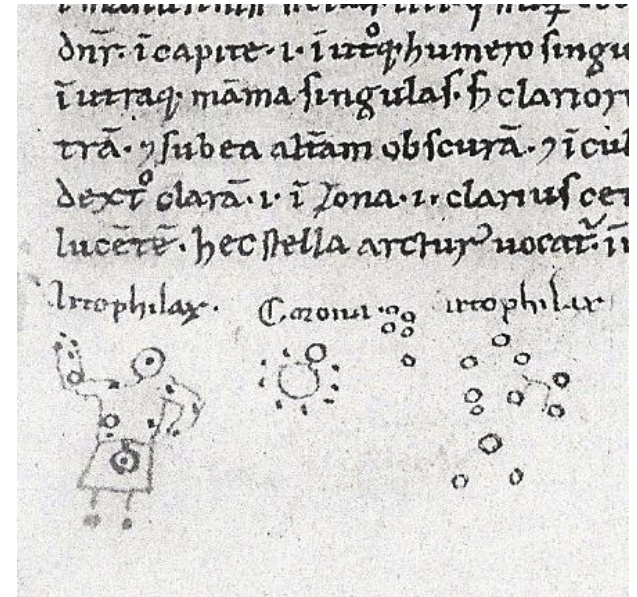 dñr̄. ī capite. ı. ī utͦq; humero singu
ī utraq; māma singulas. ħ clarior
trā. ⁊ sub ea aliam obscurā. ⁊ ī cub
dext̄ͦ clarā. ı. ī zona. ı. clarius cet
lucētē. hec stella arctur᾽ uocat᷑. ī
Artophilax. Corona. artophilax